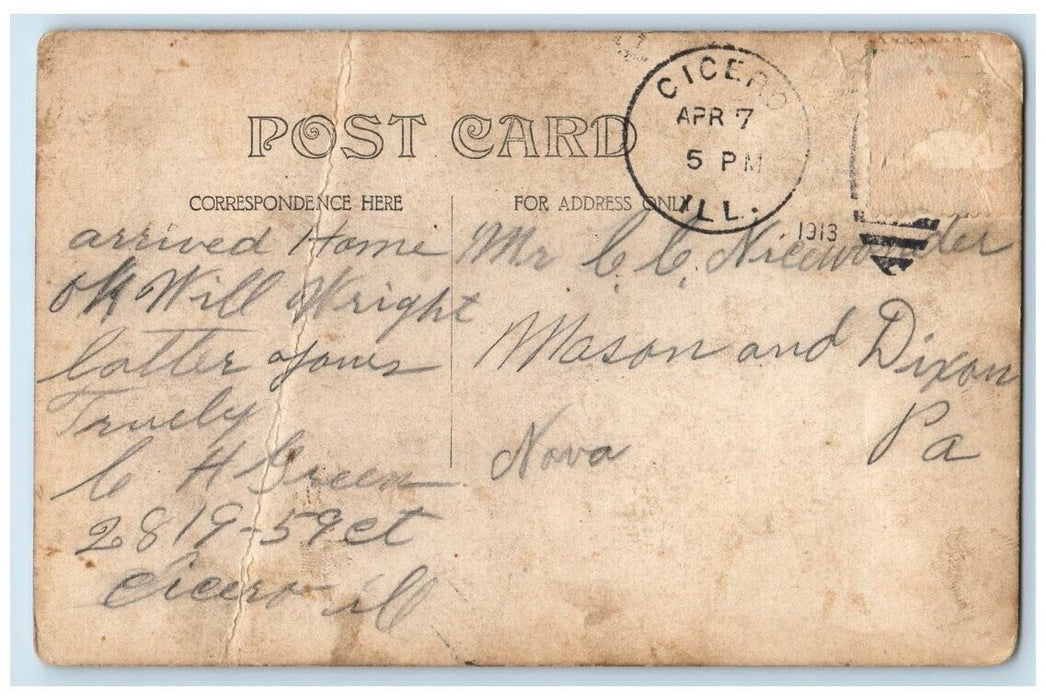 POST CARD
CICERO
APR 7
5 PM
ILL.
1913
CORRESPONDENCE HERE
FOR ADDRESS ONLY
arrived Home
OK Will Wright
latter yours
Truely
C H Green
2819-59 ct
Cicero ill
Mr C. C.
Mason and Dixon
Pa
Nova